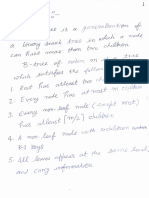 1
is a generalization of
a binary search tree in which a node
can have more than two children
B-tree of order m is a tree
which satisfies the following
1. Root has atleast two children
2. Every node has at most m children
3. Every non-leaf node (except root)
has atleast [m/2] children
4. A non-leaf node with n children
K-1 keys
5. All leaves appear at the same level,
and carry information